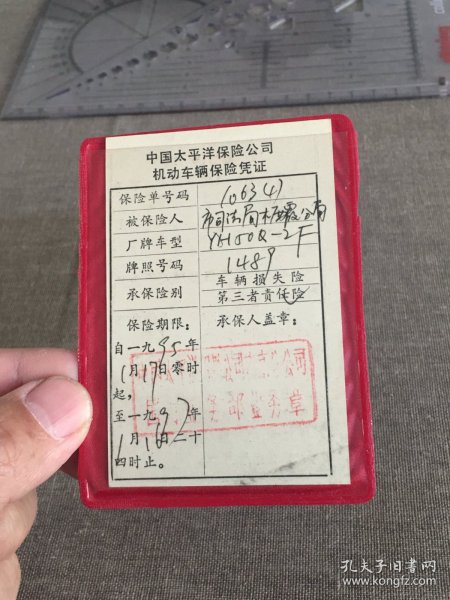 中国太平洋保险公司
机动车辆保险凭证
保险单号码 1063(4)
被保险人 市司法局
厂牌车型 YH150Q-2F
牌照号码 1489
承保险别 车辆损失险
第三者责任险
保险期限：
承保人盖章：
自一九95年
1月17日零时
起，
至一九 年
1月16日二十
四时止。
孔夫子旧书网
www.kongfz.com